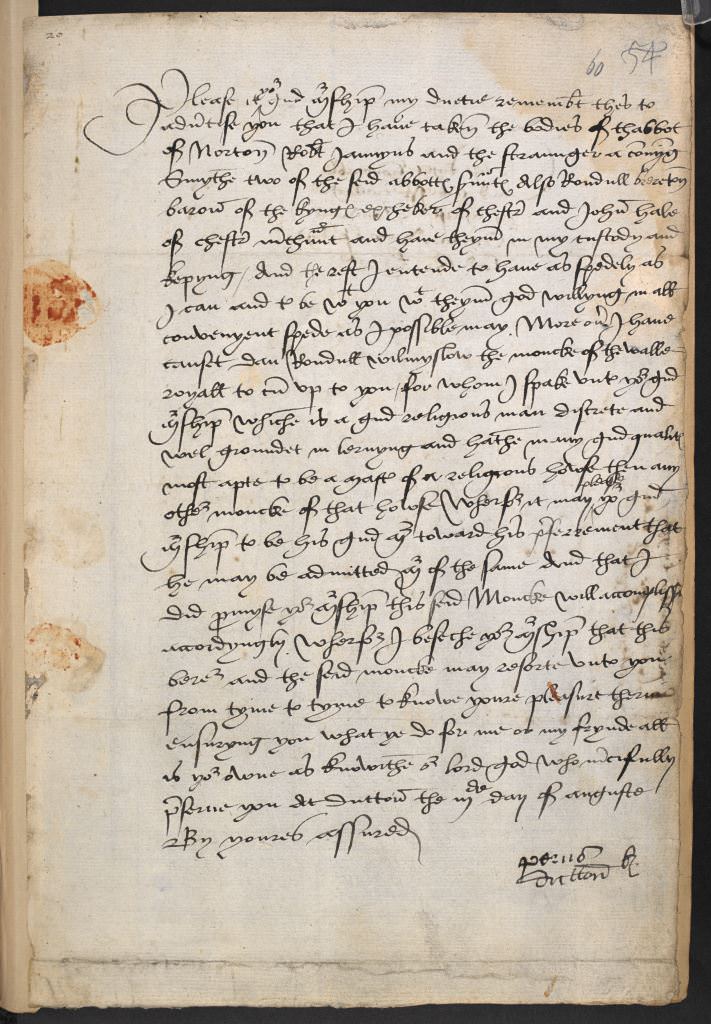 20
60 54
Please it yor gud mrship my duetie remembt thes to
advertise you that I have taken the bodies of thabbot
of Norton Robt Jannyns and the straunger a connyng
Smythe two of the seid abbottes s'unts Also Rondull brereton
baron of the kynges excheker of chestr and John hale
of chestr m'chunt and have theym in my custody and
kepyng And the rest I entende to have as spedely as
I can and to be wt you wt theym god willyng in all
convenyent spede as I possible may More ov' I have
causet dan Rondull Wilmyslow the moncke of the valle
royall to cu' up to you for whom I spake unto yor gud
mrship whiche is a gud religious man discrete and
wel groundet in lernyng and hathe many gud qualites
most apte to be a mastr of a religious howse then any
other moncke of that howse Wherfor it may please yor gud
mrship to be his gud mr toward his p'ferrement that
he may be admitted mr of the same And that I
did promyse yor mrship this seid Moncke will accomplissh
accordyngly Wherfor I beseche yor mrship that this
berer and the seid moncke may resorte unto you
from tyme to tyme to knowe youre pleasure therin
ensuryng you what ye do for me or my frynde all
is yor owne as knowithe or lord god who m'cifully
p'serve you At Dutton the iijde day of auguste
By youres assured
Perus
Dutton k